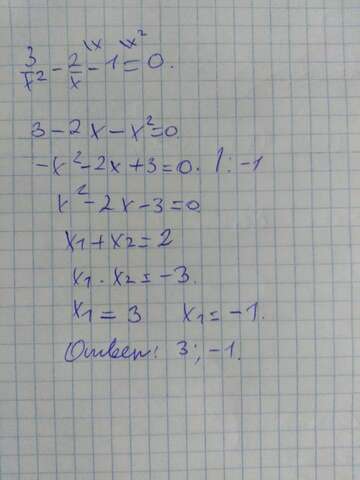 3/x² - 2\x/x - 1\x² = 0.
3 - 2x - x² = 0
-x² - 2x + 3 = 0. /: -1
x² - 2x - 3 = 0
x₁ + x₂ = 2
x₁ · x₂ = -3.
x₁ = 3 x₁ = -1.
Ответ: 3; -1.